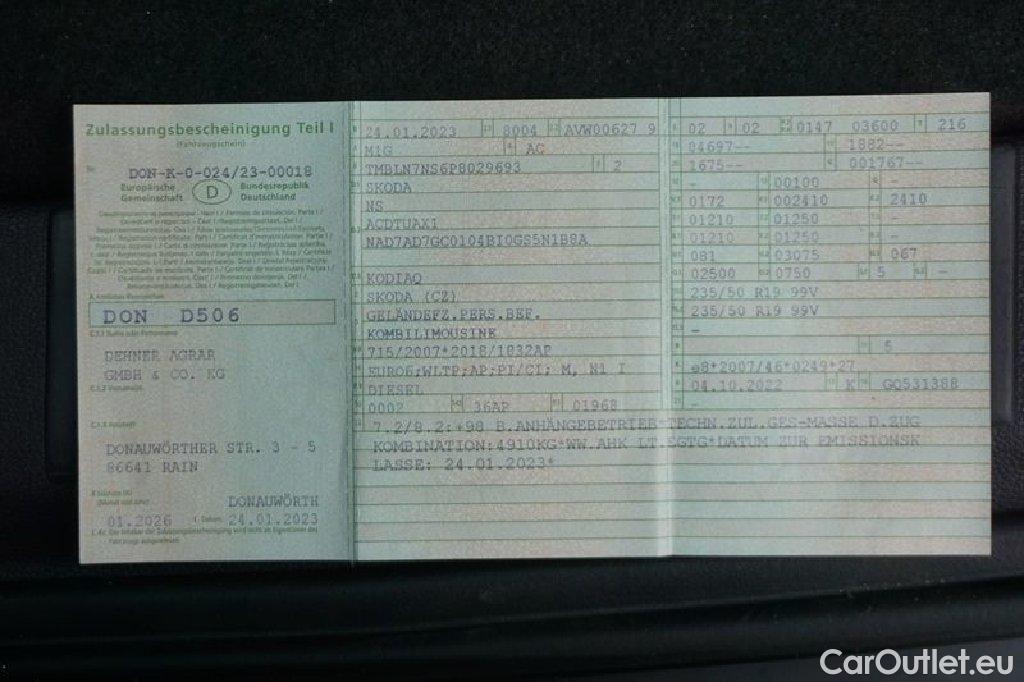 Zulassungsbescheinigung Teil I
(Fahrzeugschein)
Nr. DON-K-0-024/23-00018
Europäische Gemeinschaft
D
Bundesrepublik Deutschland
DON D506
DEHNER AGRAR
GMBH & CO. KG
DONAUWÖRTHER STR. 3 - 5
86641 RAIN
DONAUWÖRTH
01.2026 24.01.2023
24.01.2023 8004 AVW00627 9
M1G AC
TMBLN7NS6P8029693 2
SKODA
NS
ACDTUAX1
NAD7AD7GC0104BI0GS5N1B8A
KODIAQ
SKODA (CZ)
GELÄNDEFZ.PERS.BEF.
KOMBILIMOUSINE
715/2007*2018/1832AP
EURO6;WLTP;AP;PI/CI; M, N1 I
DIESEL
0002 36AP 01968
02 02 0147 03600 216
84697-- 1882--
1675-- 001767--
- 00100 -
0172 002410 2410
01210 01250 -
01210 01250 -
081 03075 067
02500 0750 5 -
235/50 R19 99V
235/50 R19 99V
-
5
e8*2007/46*0249*27
04.10.2022 K GQ531388
-
7.2/8.2:+98 B.ANHÄNGEBETRIEB*TECHN.ZUL.GES-MASSE D.ZUG
KOMBINATION:4910KG*WW.AHK LT.EGTG*DATUM ZUR EMISSIONSK
LASSE: 24.01.2023*
CarOutlet.eu